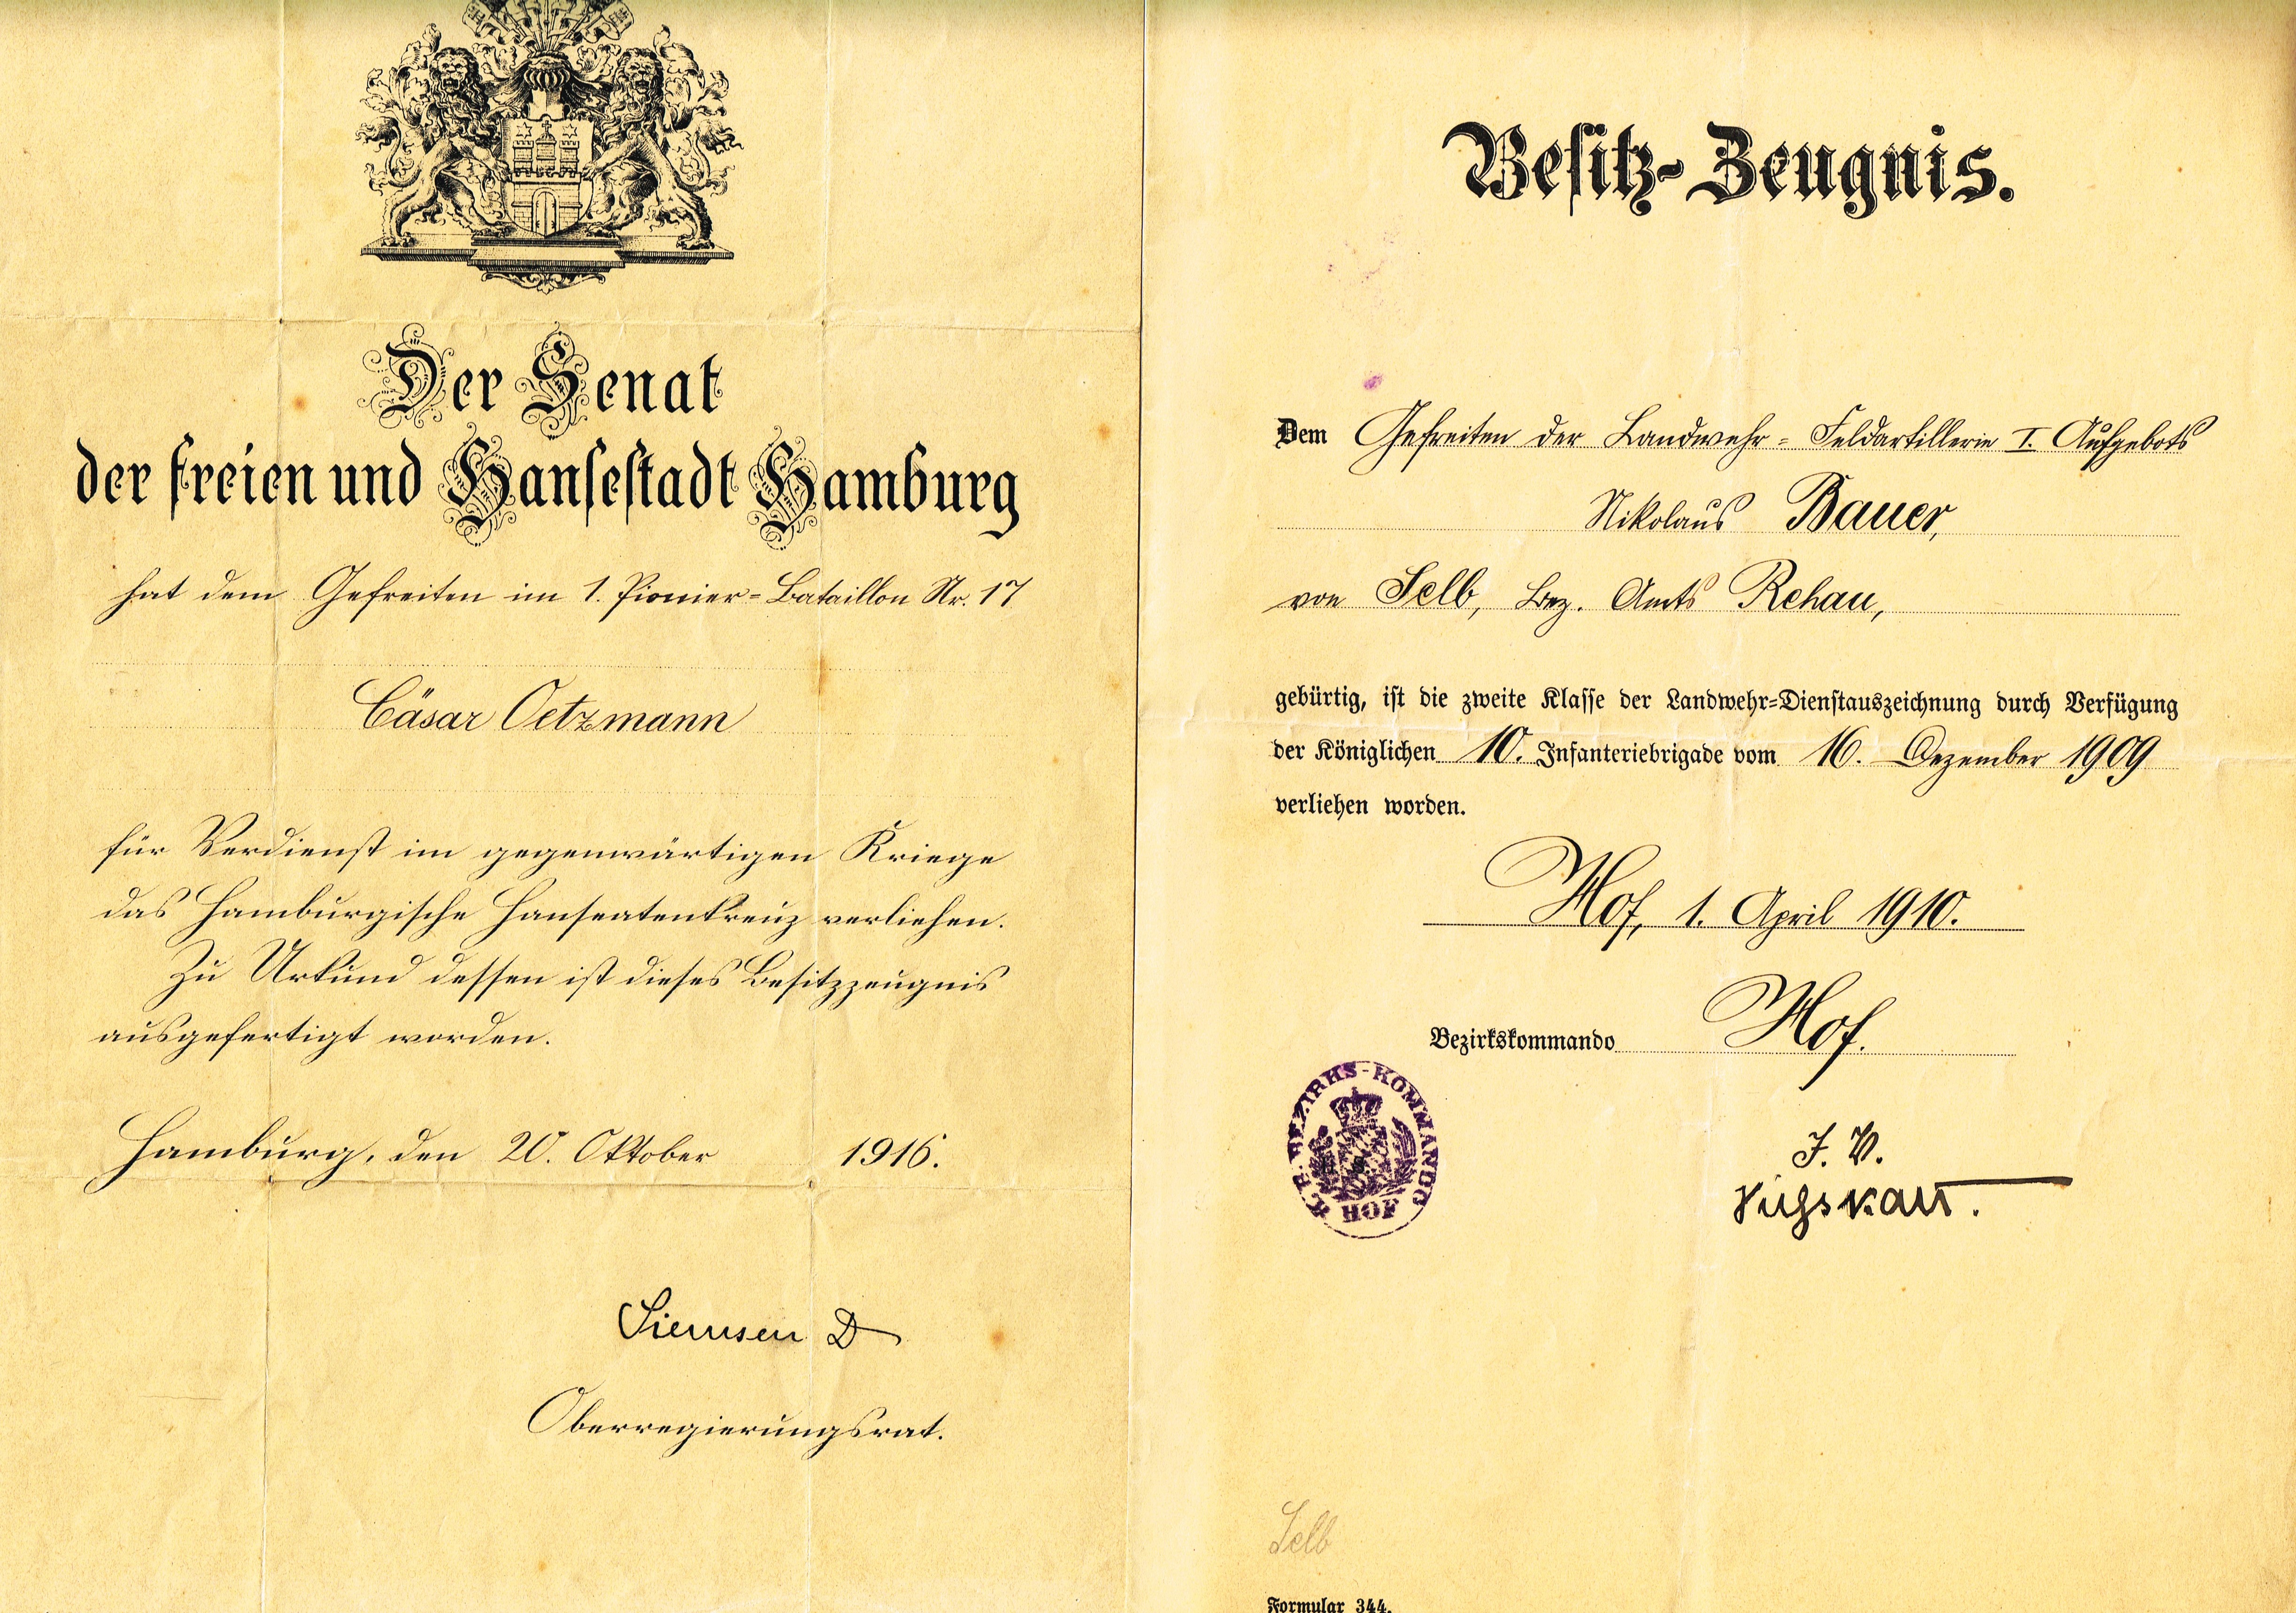 Der Senat
der freien und Hansestadt Hamburg
hat dem Gefreiten im 1. Pionier-Bataillon Nr. 17
Cäsar Oetzmann
für Verdienst im gegenwärtigen Kriege
das Hamburgische Hanseatenkreuz verliehen.
Zu Urkund dessen ist dieses Besitzzeugnis
ausgefertigt worden.
Hamburg, den 20. Oktober 1916.
Siemsen D
Oberregierungsrat.
Besitz-Zeugnis.
Dem Gefreiten der Landwehr-Feldartillerie I. Aufgebots
Nikolaus Bauer,
von Selb, Bez. Amts Rehau,
gebürtig, ist die zweite Klasse der Landwehr-Dienstauszeichnung durch Verfügung
der Königlichen 10. Infanteriebrigade vom 16. Dezember 1909
verliehen worden.
Hof, 1. April 1910.
Bezirkskommando Hof.
K. B. BEZIRKS-KOMMANDO
HOF
J. V.
Selb
Formular 344.